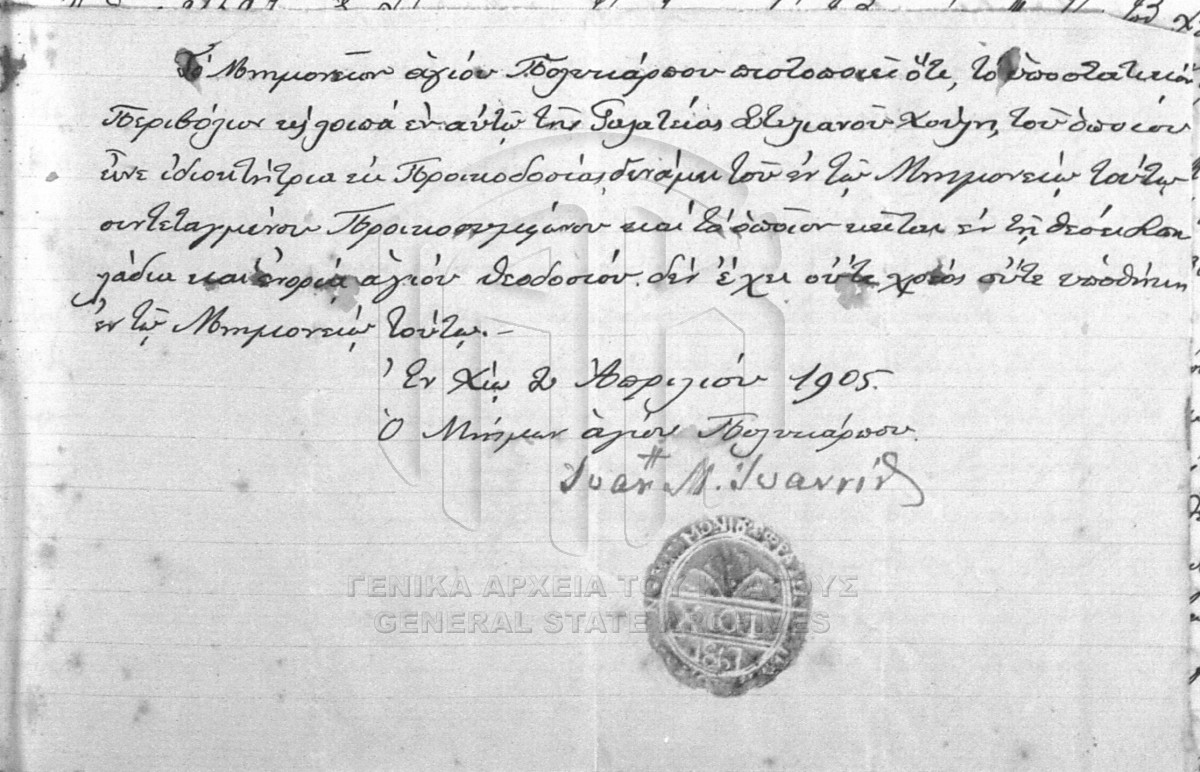 Τὸ Μνημονεῖον ἁγίου Πολυκάρπου πιστοποιεῖ ὅτι, τὸ ὑποστατικὸν
Περιβόλιον κ̀ λοιπὰ ἐν αὐτῷ τῆς Γαλατείας Στυλιανοῦ Χούλη, τοῦ ὁποίου
εἶνε ἰδιοκτήτρια ἐκ Προικοδοσίας δυνάμει τοῦ ἐν τῷ Μνημονείῳ τούτῳ
συντεταγμένου Προικοσυμφώνου καὶ τὸ ὁποῖον κεῖται ἐν τῇ θέσει
λάδια καὶ ἐνορίᾳ ἁγίου Θεοδοσίου. δὲν ἔχει οὔτε χρέος οὔτε ὑποθήκην
ἐν τῷ Μνημονείῳ τούτῳ. –
Ἐν Χίῳ Ἀπριλίου 1905.
Ὁ Μνήμων ἁγίου Πολυκάρπου.
Ἰωάνν Μ. Ἰωαννίδ
ΧΙΟΥ
1867
ΓΕΝΙΚΑ ΑΡΧΕΙΑ ΤΟΥ ΚΡΑΤΟΥΣ
GENERAL STATE ARCHIVES